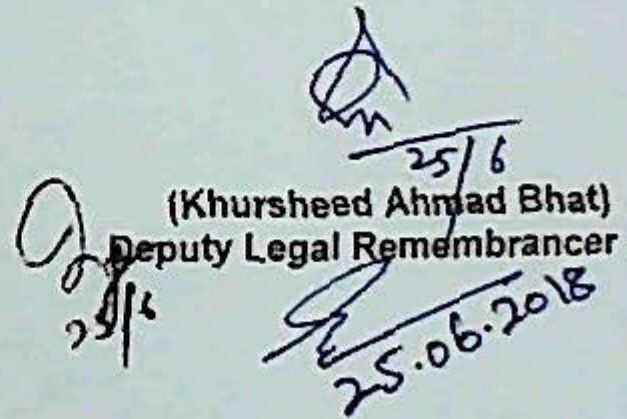 25/6
(Khursheed Ahmad Bhat)
Deputy Legal Remembrancer
25/6
25.06.2018